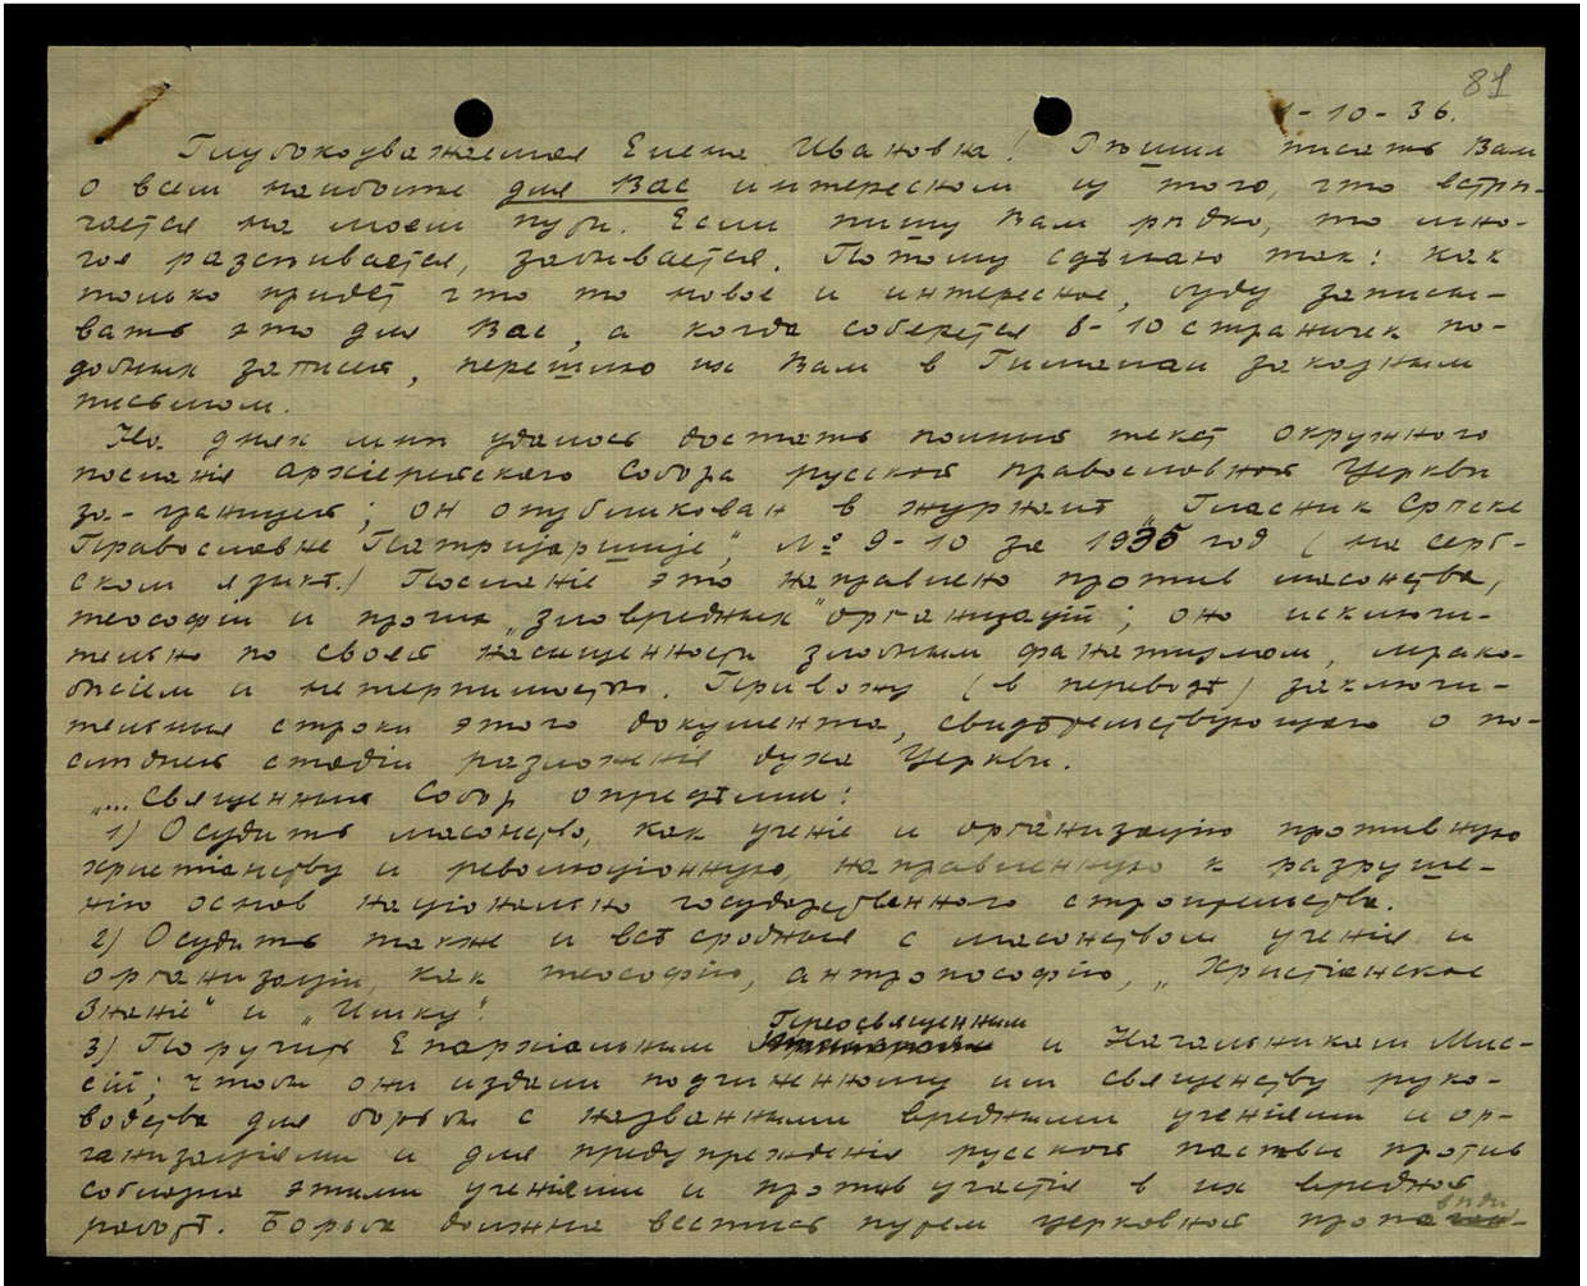 81
1-10-36.
Глубокоуважаемая Елена Ивановна! Рѣшил писать Вам
о всем наиболее для Вас интересном из того, что встрѣ-
чается на моем пути. Если пишу Вам рѣдко, то мно-
гое разсѣивается, забывается. Потому сдѣлаю так: как
только придет что то новое и интересное, буду записы-
вать это для Вас, а когда соберется 8-10 страничек по-
добных записей, перешлю их Вам в Гималаи заказным
письмом.
На днях мнѣ удалось достать полный текст окружного
посланія архіерейского Собора русской православной Церкви
за-границей; он опубликован в журналѣ „Гласник Српске
Православне Патријаршије", № 9-10 за 1935 год (на серб-
ском языкѣ.) Посланіе это направлено против масонства,
теософіи и прочих „зловредных" организацій; оно исключи-
тельно по своей насыщенности злобным фанатизмом, мрако-
бѣсіем и нетерпимостью. Привожу (в переводѣ) заключи-
тельные строки этого документа, свидѣтельствующаго о по-
слѣдней стадіи разложенія духа Церкви.
„... Священный Собор опредѣлил:
1) Осудить масонство, как ученіе и организацію противную
христіанству и революціонную, направленную к разруше-
нію основ національно государственного строительства.
2) Осудить также и всѣ сродные с масонством ученія и
организаціи, как теософію, антропософію, „Христіанское
Знаніе" и „Имку".
3) Поручить Епархіальным Преосвященным и Начальникам Мис-
сій, чтобы они издали подчиненному им священству руко-
водства для борьбы с названными вредными ученіями и ор-
ганизаціями и для предупрежденія русской паствы против
соблазна этими ученіями и против участія в их вредной
работѣ. Борьба должна вестись путем церковной проповѣди